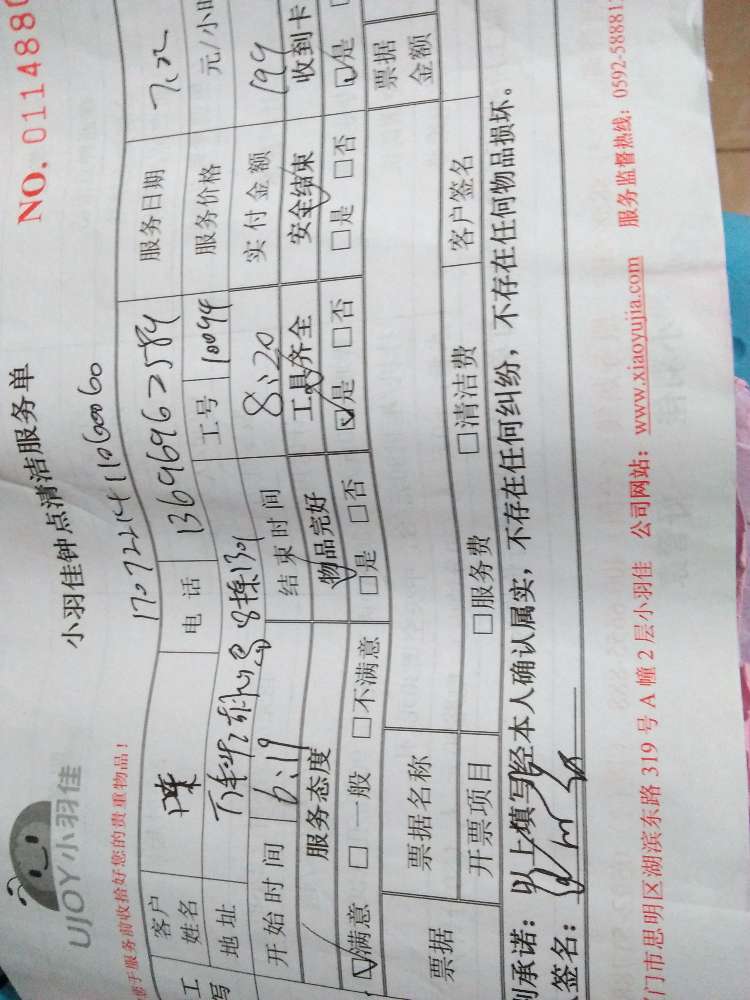 UJOY小羽佳
小羽佳钟点清洁服务单
NO. 0114880
请于服务前收拾好您的贵重物品!
1707221411060060
客户姓名 陈 电话 13696962584 服务日期 7.22
地址 8栋1301 工号 10094 服务价格 元/小时
开始时间 6:19 结束时间 8:20 实付金额 199
服务态度 物品完好 工具齐全 安全结束 收到卡
☑满意 □一般 □不满意 □是 □否 ☑是 □否 □是 □否 ☑是
票据 票据名称 票据金额
开票项目 □服务费 □清洁费 客户签名
承诺:以上填写经本人确认属实,不存在任何纠纷,不存在任何物品损坏。
签名:
门市思明区湖滨东路319号A幢2层小羽佳 公司网站:www.xiaoyujia.com 服务监督热线:0592-58881